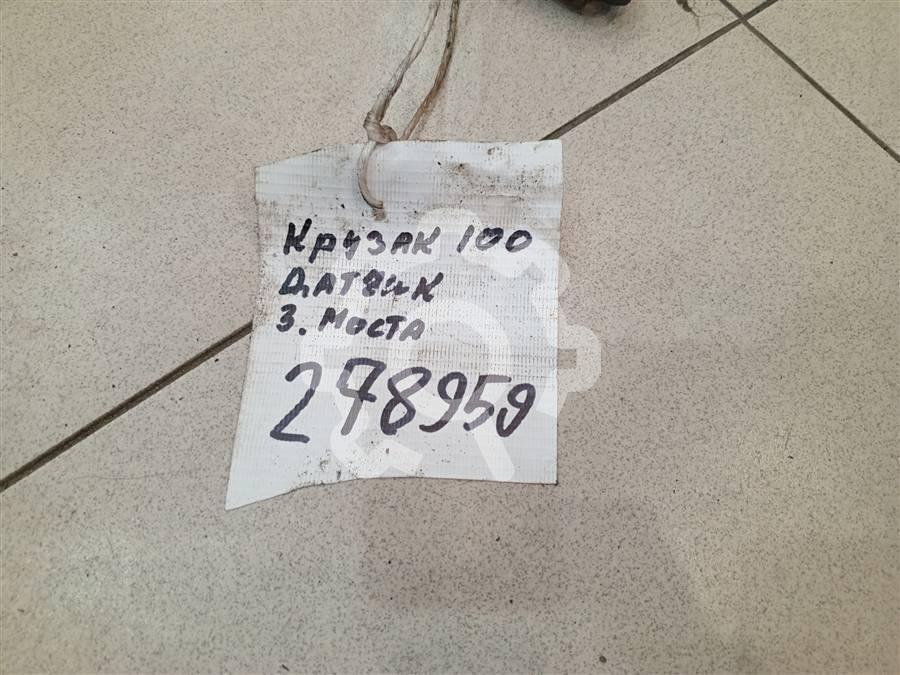 Крузак 100
Датчик
З. Моста
278959